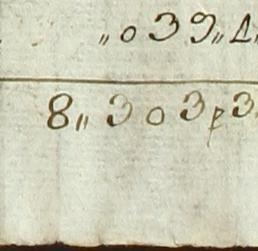 „039„1„
8„303p3